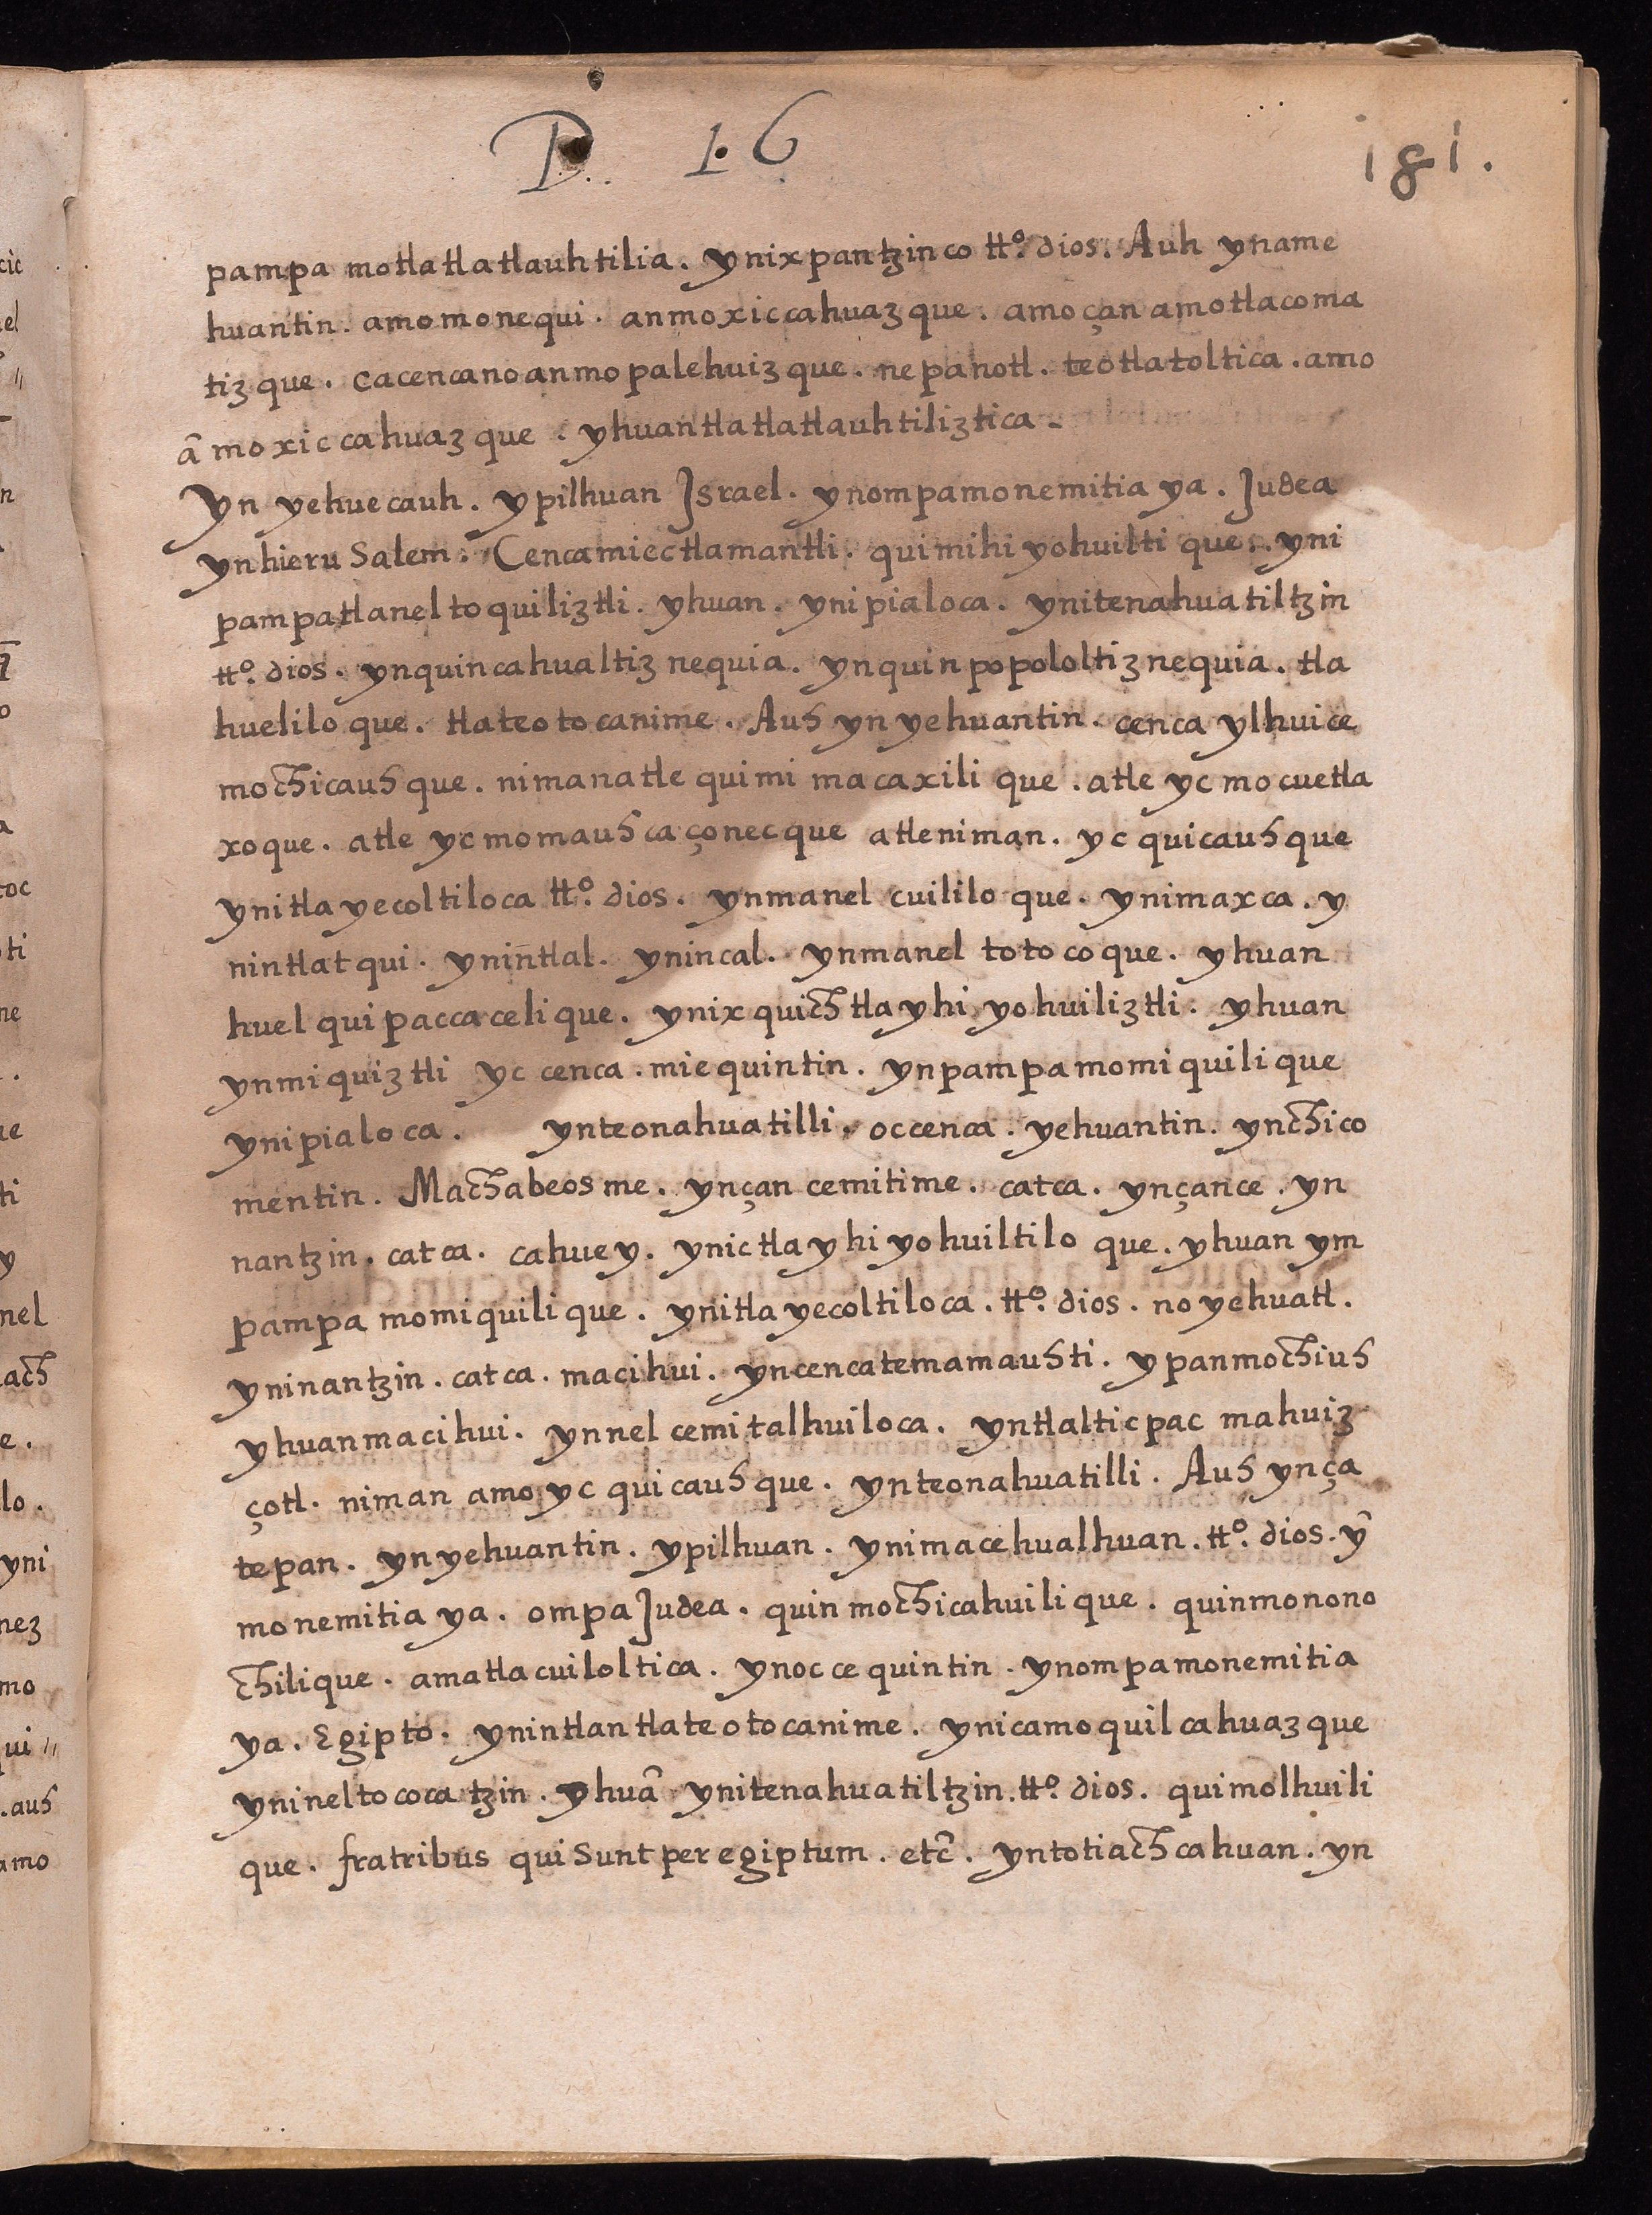 D. 16
181.
pampa motlatlatlauhtilia. ynixpantzinco tt.º dios. Auh yname
huantin. amomonequi. anmoxiccahuazque. amo çan amotlacoma
tizque. cacencanoanmopalehuizque. nepanotl. teotlatoltica. amo
ã moxiccahuazque. yhuantlatlatlauhtiliztica.
Yn yehuecauh. ypilhuan Israel. ynompamonemitia ya. Judea
ynhieruSalem. Cencamiectlamantli. quimihiyohuilti que. yni
pampatlaneltoquiliztli. yhuan. ynipialoca. ynitenahuatiltzin
tt.º dios. ynquincahualtiz nequia. ynquinpopololtiznequia. tla
hueliloque. tlateotocanime. Auh ynyehuantin. cenca ylhuice
mochicauhque. nimanatle quimi macaxili que. atle yc mocuetla
xoque. atle yc momauhcaçonecque atleniman. yc quicauhque
ynitlayecoltiloca tt.º dios. ynmanel cuililoque. ynimaxca. y
nintlatqui. ynintlal. ynincal. ynmanel totocoque. yhuan
huel quipaccacelique. ynixquich tlayhiyohuiliztli. yhuan
ynmiquiztli yc cenca. miequintin. ynpampamomiquilique
ynipialoca. ynteonahuatilli. occenca. yehuantin. ynchico
mentin. Machabeosme. ynçan cemitime. catca. ynçance. yn
nantzin. catca. cahuey. ynictlayhiyohuiltilo que. yhuan ym
pampa momiquilique. ynitlayecoltiloca. tt.º dios. no yehuatl.
yninantzin. catca. macihui. yncencatemamauhti. ypanmochiuh
yhuanmacihui. ynnel cemitalhuiloca. yntlalticpac mahuiz
çotl. niman amo yc quicauhque. ynteonahuatilli. Auh ynça
tepan. ynyehuantin. ypilhuan. ynimacehualhuan. tt.º dios. yn̄
monemitia ya. ompa Judea. quinmochicahuilique. quinmonono
chilique. amatlacuiloltica. ynoccequintin. ynompamonemitia
ya. Egipto. ynintlantlateotocanime. ynicamoquilcahuazque
yninneltococatzin. yhuã ynitenahuatiltzin. tt.º dios. quimolhuili
que. fratribus quiSunt per egiptum. etc̃. yntotiachcahuan. yn